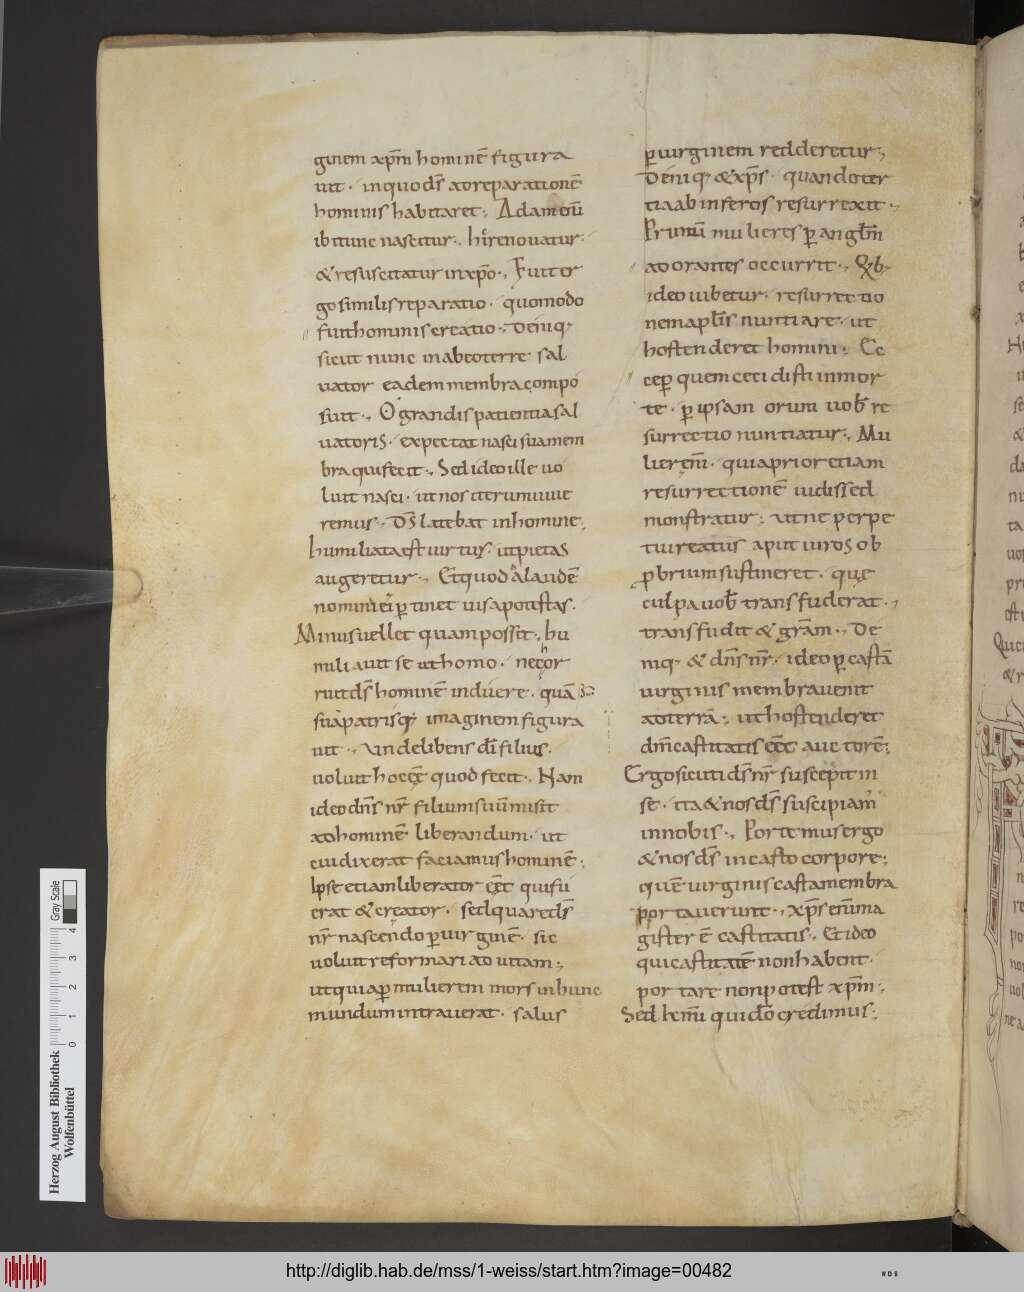 ginem xp̄m hominē figura
uit · inquo dS̄ adreparationē
hominis habitaret ; Adam cū
ibi tunc nascitur ; hic renouatur ;
& resuscitatur in xp̄o ; Fuit er
go similis reparatio · quomodo
fuit hominis creatio ; Deniq;
sicut nunc in abcoterre sal
uator eadem membra compo
suit ; O grandis patientia sal
uatoris · expectat nasci sua mem
bra qui fecit ; Sed ideo ille uo
luit nasci · ut nos iterum uiue
remus ; DS̄ latebat in homine ;
humiliata est uirtus · ut pietas
augeretur ; Et quod ad laudē
nominiei ptinet uisa potestas ·
Minus uellet quam possit ; hu
miliauit se ut homo · nec hor
ruit dS̄ hominē induere · quā
suā patrisq; imaginem figura
uit ; Unde libens dī filius
uoluit hoc eē quod fecit ; Nam
ideo dn̄s nr̄ filium suū misit
ad hominē liberandum · ut
cui dixerat faciamus hominē ;
Ipse etiam liberator eēt qui fu
erat & creator · sed quare dS̄
nr̄ nascendo p uirginē · sic
uoluit reformari ad uitam ;
ut qui ap mulierem mors in hunc
mundum intrauerat · salus
p uirginem redderetur ;
Deniq; & xp̄s · quando ter
tia ab inferos resurrexit ;
Primū mulieres p anglm̄
adorantes occurrit ; Q̄b
ideo iubetur · resurrectio
nem aplīs nuntiare · ut
hostenderet homini ; Ec
ce p quem cecidisti in mor
te · p ipsam orum uob̄ re
surrectio nuntiatur ; Mu
lierem̄ · quia prior etiam
resurrectionē uidissed
monstratur ; ut ne perpe
tui reatus aput uiros ob
probrium sustineret · que
culpa uob̄ transfuderat ·
transfudit & grām ; De
niq; & dn̄s nr̄ · ideo p castā
uirginis membra uenit
ad terrā ; ut hostenderet
dm̄ castitatis eēt auctorē ;
Ergo sicuti dS̄ nr̄ suscepit in
se · ita & nos dS̄ suscipiam'
in nobis ; Portemus ergo
& nos dS̄ in casto corpore ;
quē uirginis casta membra
portauerunt ; xp̄s enim ma
gister ē castitatis · Et ideo
qui castitatē non habent ·
portare non potest xp̄m ;
Sed hem̄ qui do credimus ;
Gray Scale
0 1 2 3 4
Herzog August Bibliothek
Wolfenbüttel
http://diglib.hab.de/mss/1-weiss/start.htm?image=00482